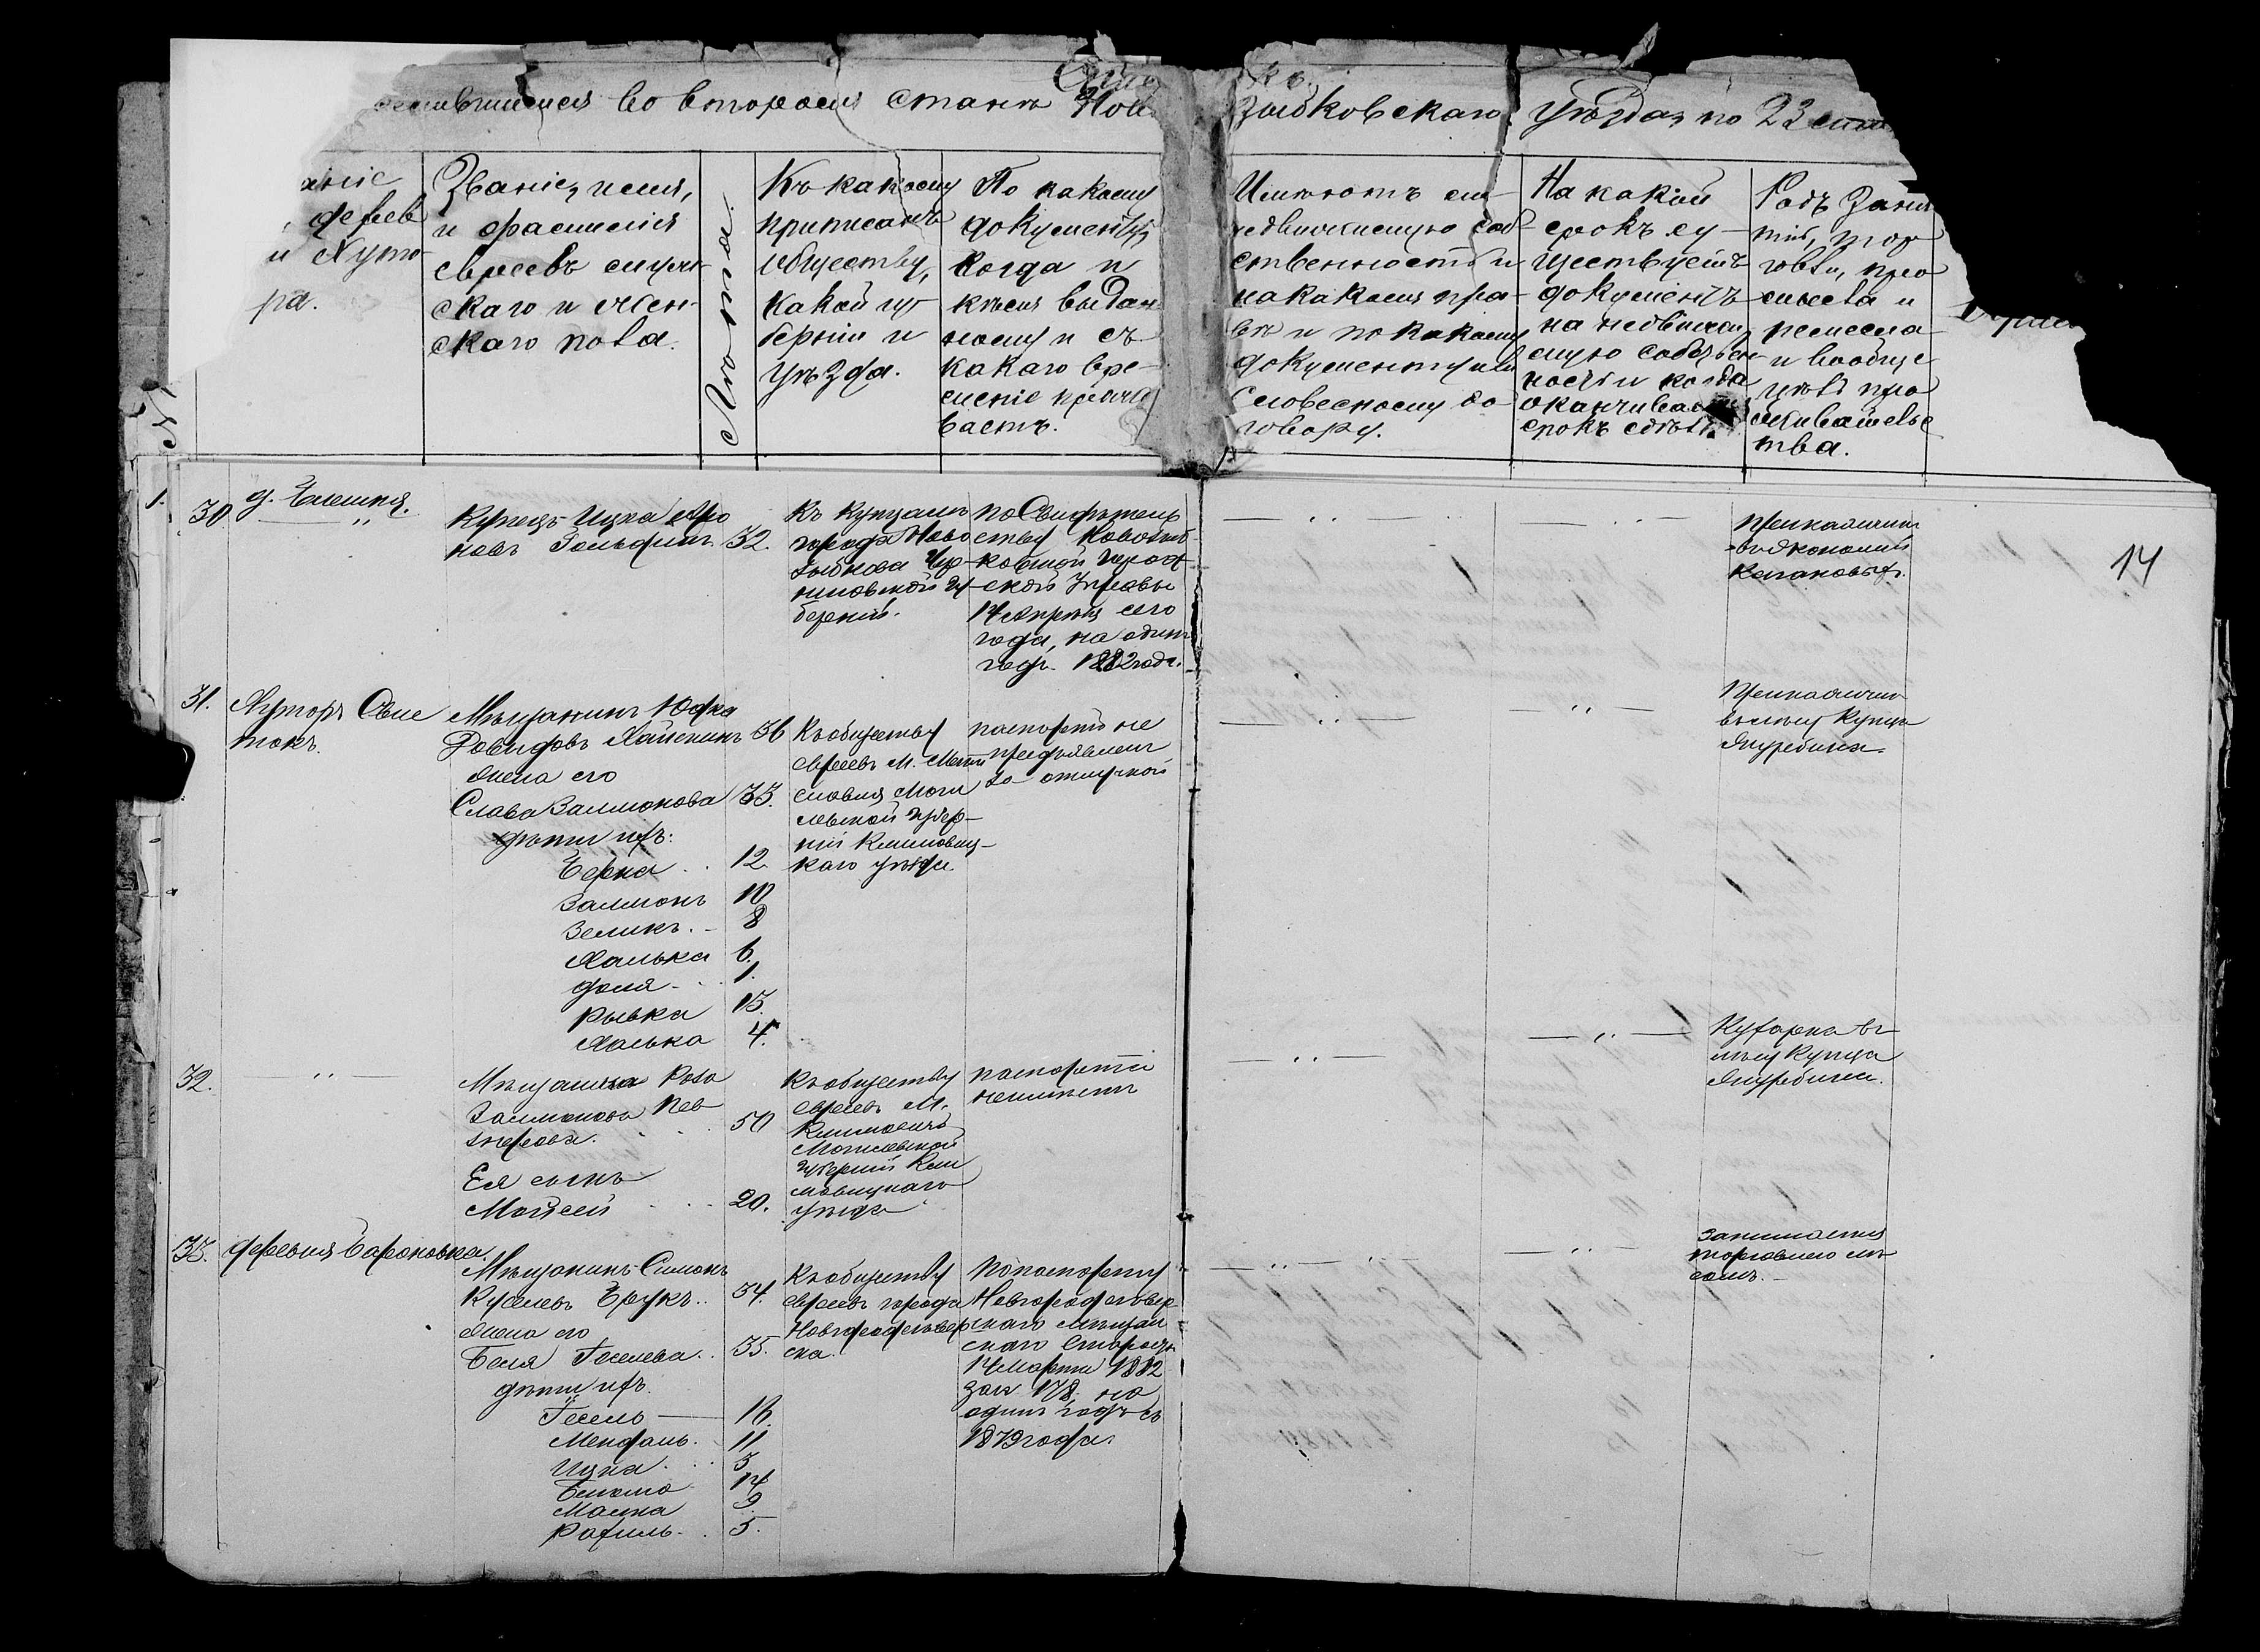 во второмъ станѣ Новозыбковскаго уѣзда, по 23
аніе
дерев
и Хуто-
ра.
Званіе, имя,
и фамилія
евреевъ мужс-
скаго и жен-
скаго пола.
Лѣта.
Къ какому
приписанъ
обществу,
какой гу-
берніи и
уѣзда.
По какому
документу,
когда и
кѣмъ выдан-
ному и съ
какаго вре-
мени прожи-
ваетъ.
Имѣютъ ли
недвижимую соб-
ственность и
на какомъ пра-
вѣ и по какому
документу или
словесному до-
говору.
На какой
срокъ су-
ществуетъ
документъ
на недвижи-
мую собствен-
ность и когда
оканчивается
срокъ
Родъ заня-
тій, тор-
говли, про-
мысла и
ремесла
и вообще
чѣмъ про-
живательс-
тва.
1.
14
30
Купецъ Ицка Аро
новъ Гольдинъ
32.
Къ купцамъ
города Ново
зыбкова Чер-
ниговской гу-
берніи.
по Свидѣтель
ству Новозыб-
ковской Город-
ской Управы
14 Апрѣля сего
года, на одинъ
годъ 1882 года.
Прикащикъ
въ Экономіи
31.
Хуторъ Свис
токъ.
Мѣщанинъ Юдка
Довидовъ Хайкинъ
36
жена его
Слава Залмонова
33.
дѣти ихъ:
Берка
12.
Залмонъ
10
Зеликъ.
8
Халька
6.
доля
1.
Рывка
15.
Хаська
4.
Къ обществу
евреевъ м.
славля Моги
левской губер-
ніи Климовиц-
каго уѣзда.
паспортъ не
предъявленъ
за отлучкой
Прикащикъ
въ лѣсу Купца
Ягудкина.
32.
Мѣщанка Роза
Залмонова Пев
знерова.
50
Ея сынъ
Мойсей
20.
Къ обществу
евреевъ м.
Климовичъ
Могилевской
губерніи Кли
мовицкаго
уѣзда
паспорта
неимѣетъ
Кухарка въ
лѣсу Купца
33.
деревня Бароновка.
Мѣщанинъ Симонъ
Куселевъ Брукъ.
34.
жена его
Беля Геселева.
35.
дѣти ихъ.
Гесель
16.
Мендель.
11
Ицка
3
14
Малка
9
Рахиль.
5.
Къ обществу
евреевъ города
Новгородсѣвер
ска.
По паспорту
Новгородсѣвер
скаго мѣщан
скаго Старосты
14 Марта 1882
за № 178. на
одинъ годъ съ
1879 года.
Занимается
торговлею лѣ-
сомъ.